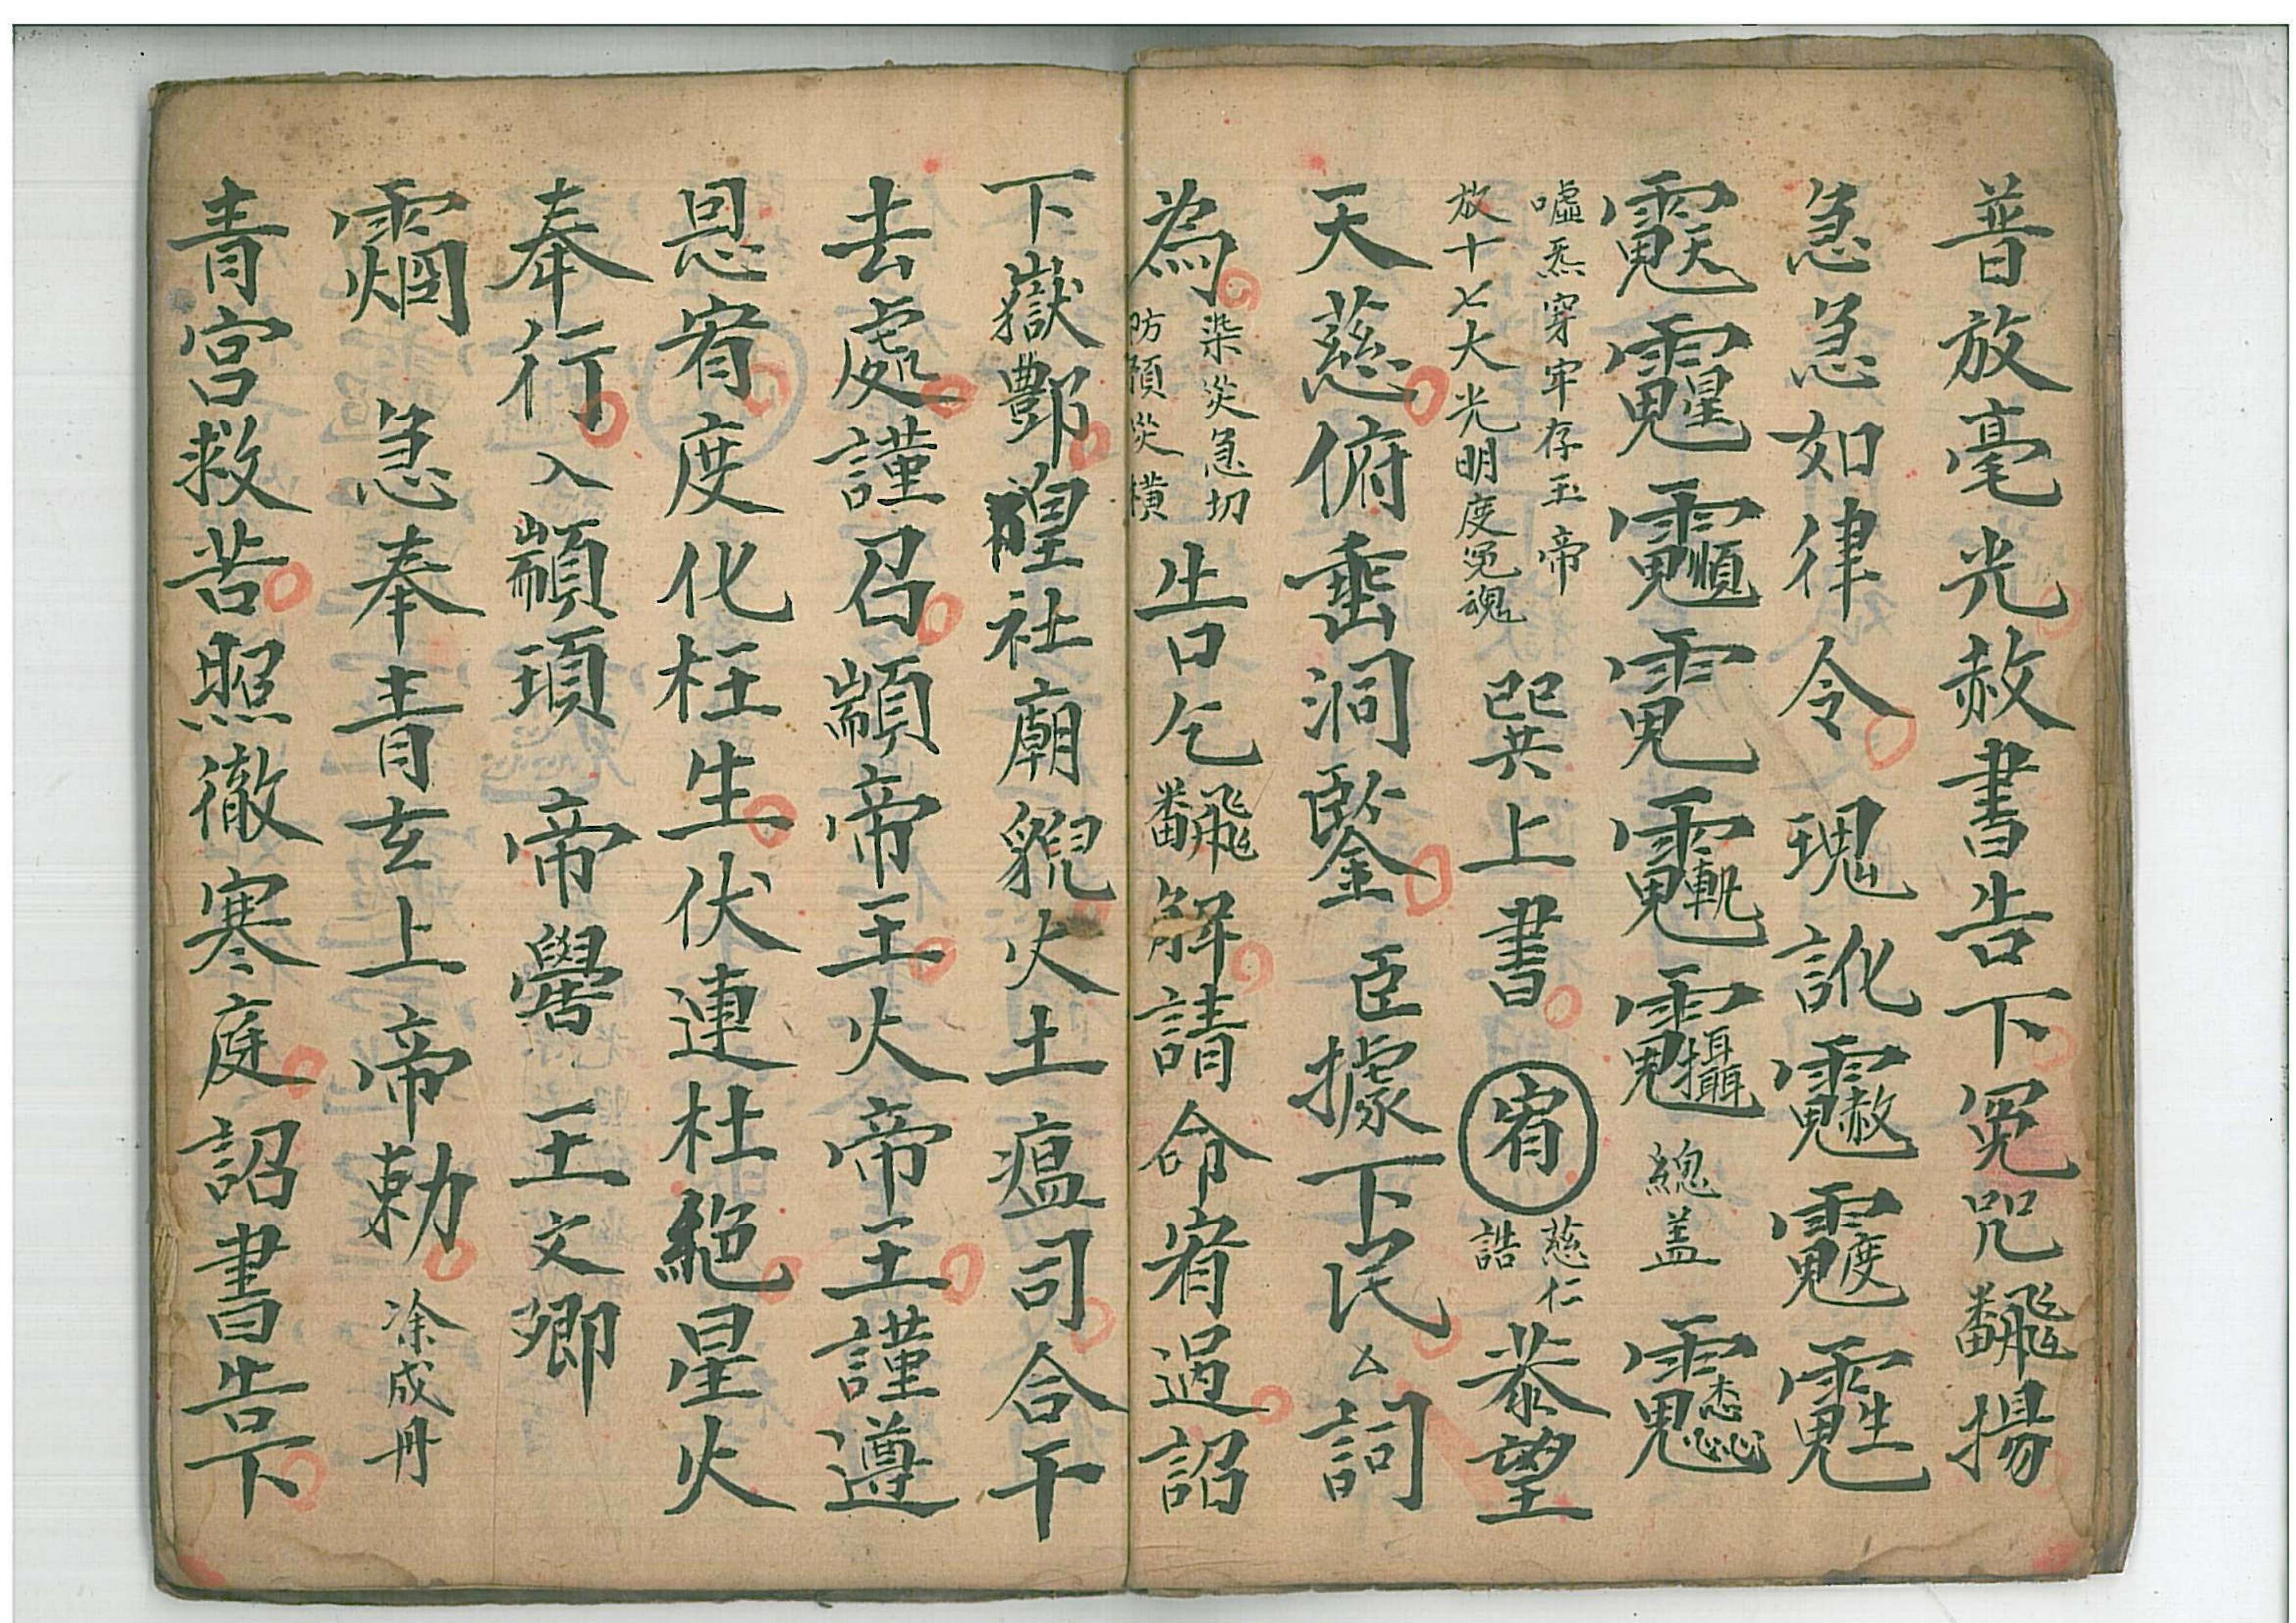 普放毫光赦書告下冤咒飜揚
急急如律令 訛
總盖
噓炁穿牢存玉帝
放十七大光明度冤魂
上書宥慈仁誥恭望
天慈俯垂洞鋻臣據下民厶詞
為染災急切防預災橫告乞飜解請命宥過詔
下嶽酆隍社廟貎火土瘟司合干
去處謹召顓帝王火帝王謹遵
恩宥度化枉生伏連杜絕星火
奉行入顓頊帝嚳王文卿
急奉青玄上帝勅涂成冊
青宮救苦照徹寒庭詔書告下